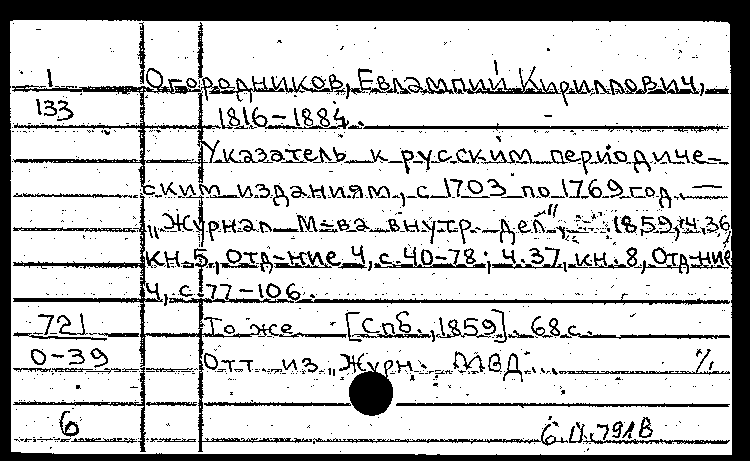 1 Огородников, Евлампий Кириллович,
133 1816-1884.
Указатель к русским периодиче-
ским изданиям, с 1703 по 1769 год. —
„Журнал М-ва внутр. дел“, 1859, ч. 36,
кн. 5, отд-ние 4, с. 40-78; ч. 37, кн. 8, Отд-ние
4, с. 77-106.
721 То же [Спб., 1859]. 68 с.
0-39 Отт. из „Журн. МВД...
6